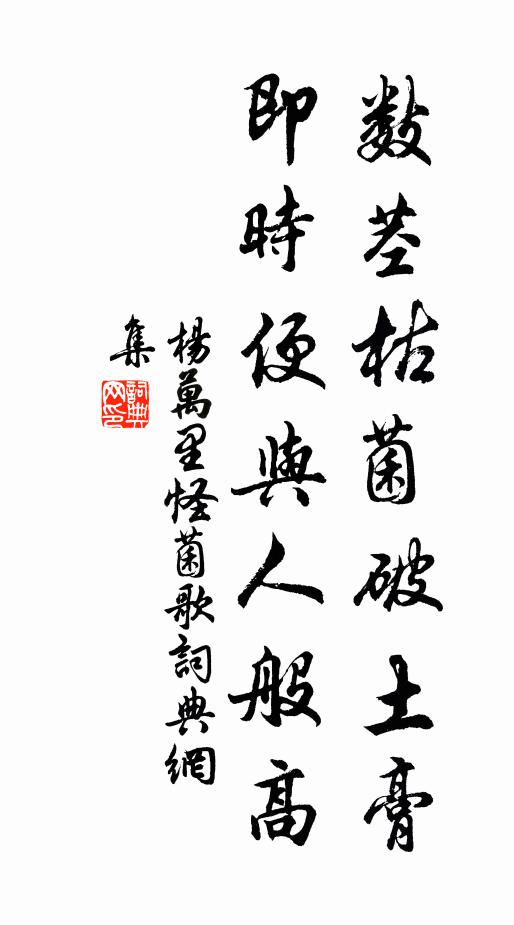 數茎枯菌破土膏
即時便與人般高
楊萬里怪菌歌詞典網
集
詞典网印